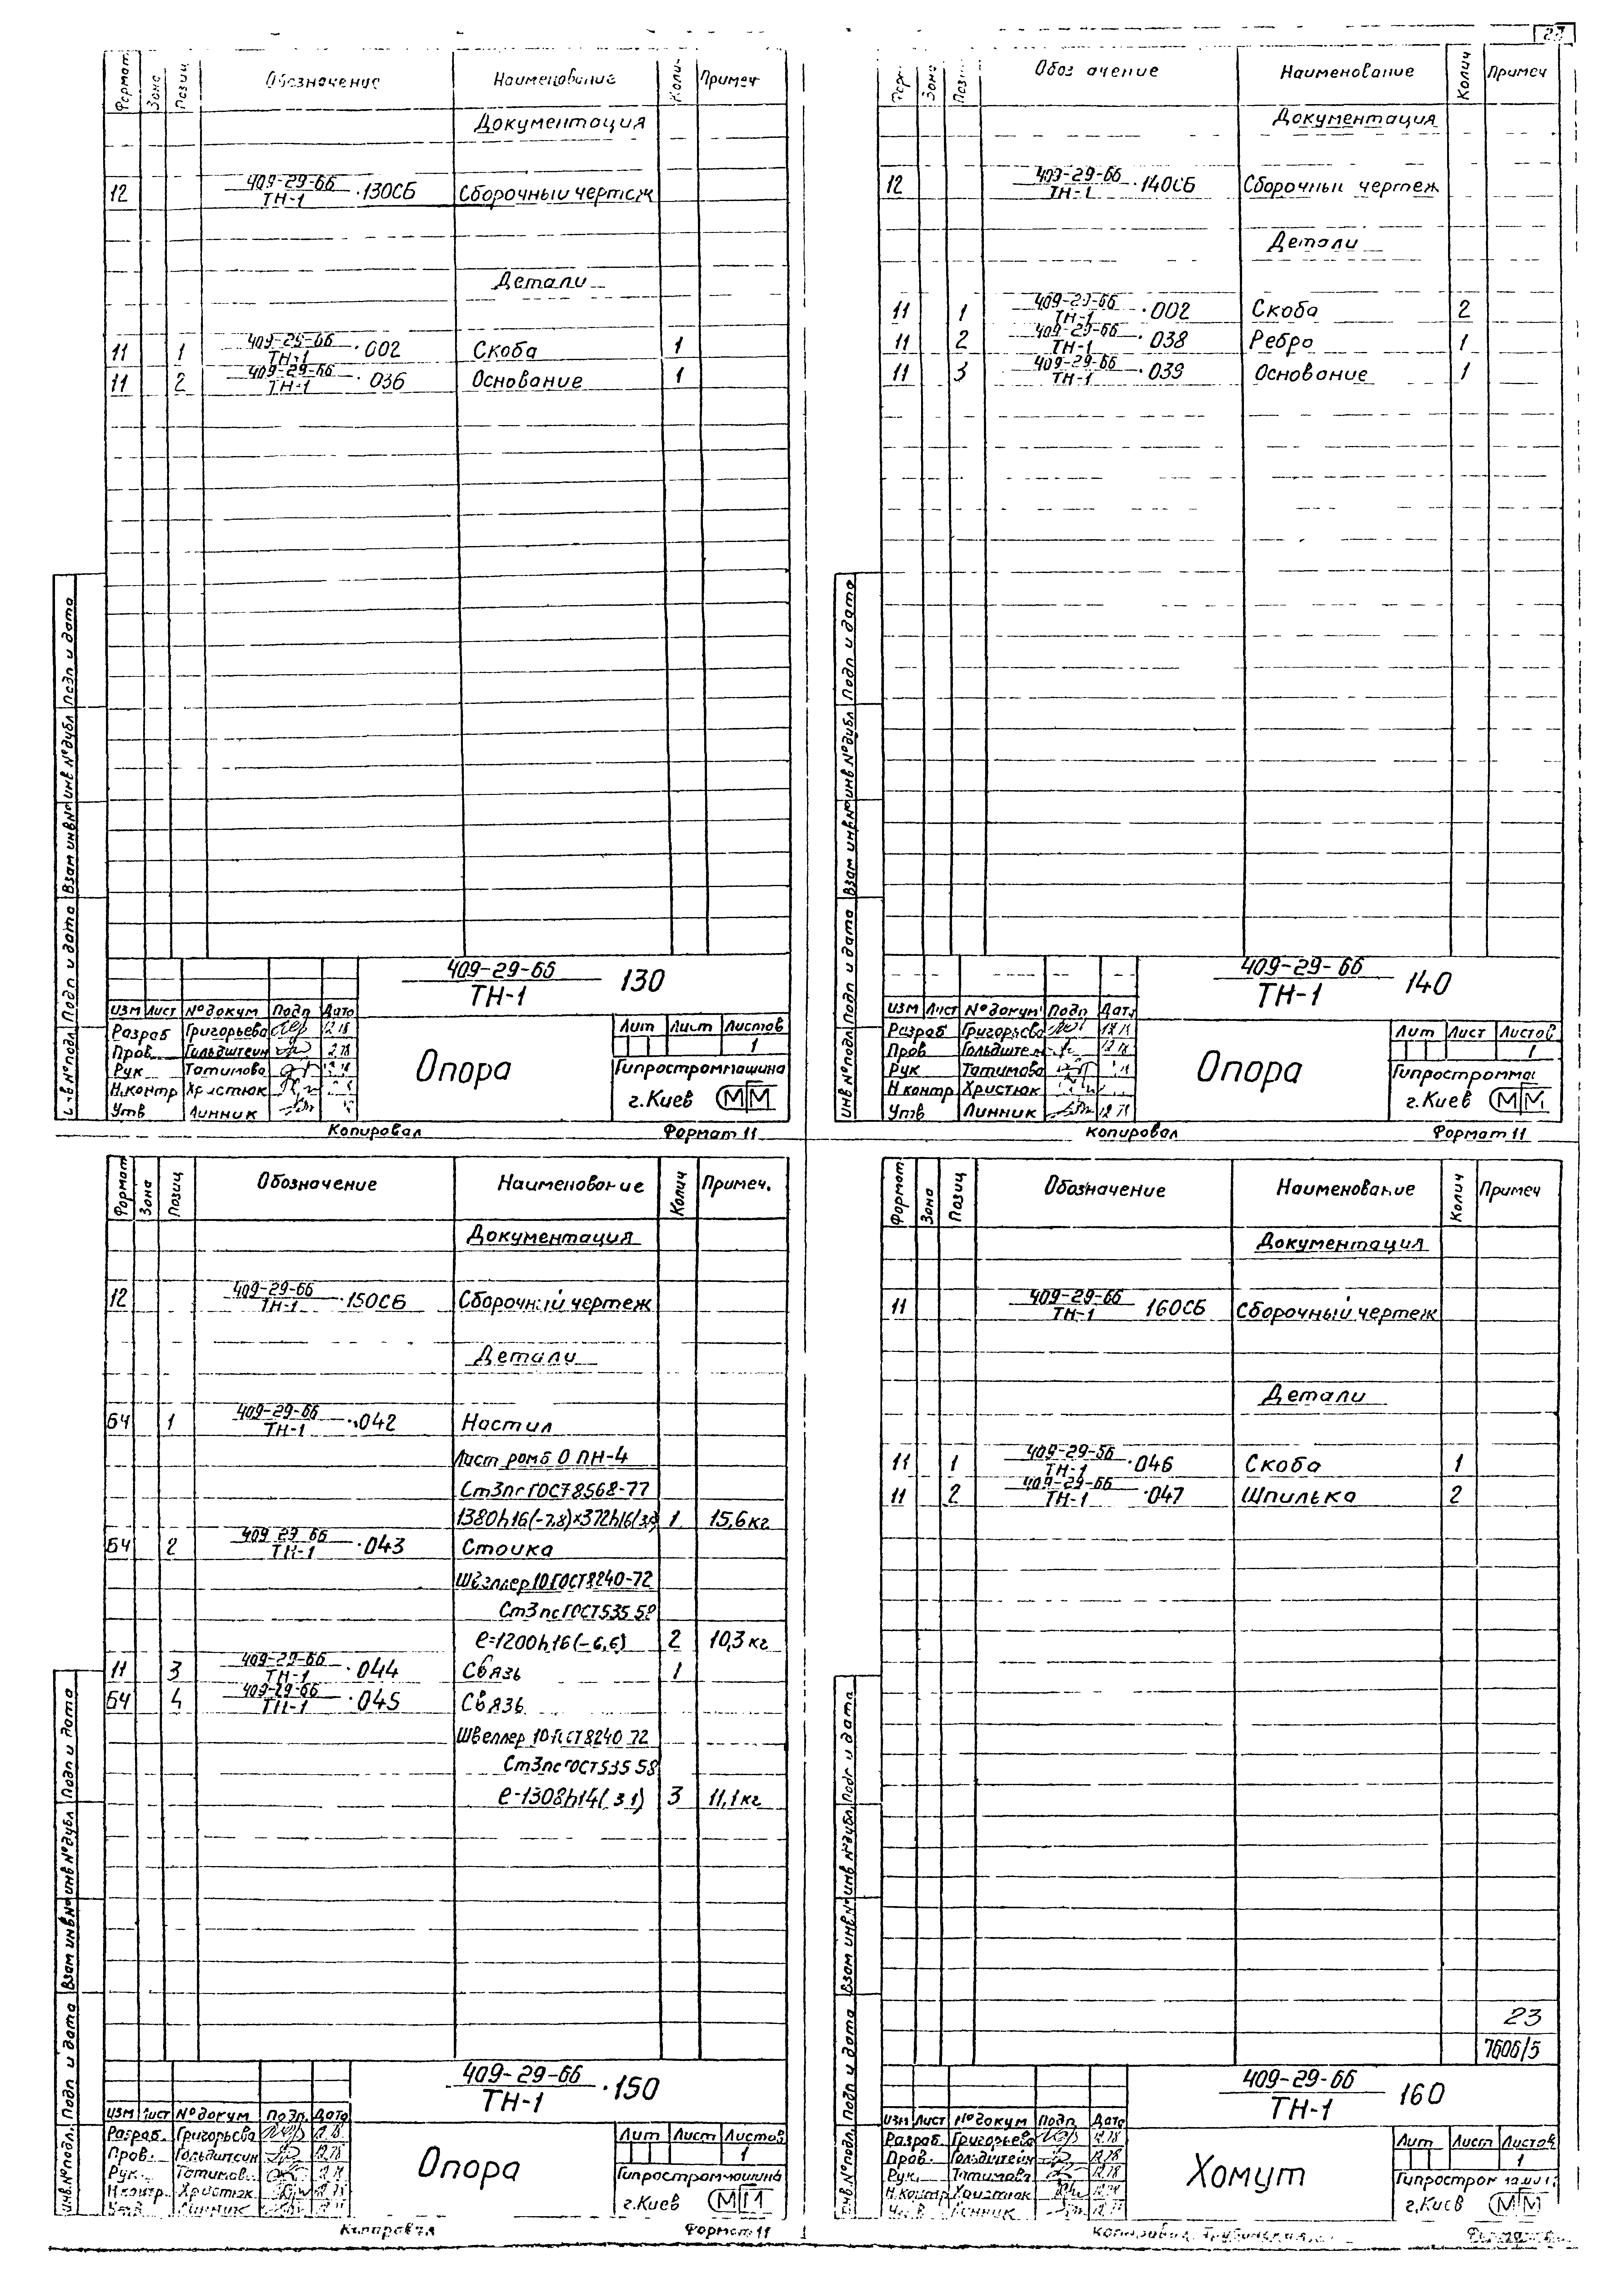 Формат Зона Позиц Обозначение Наименование Колич Примеч
Документация
12 409-29-66/ТН-1 .130СБ Сборочный чертеж
Детали
11 1 409-29-66/ТН-1 .002 Скоба 1
11 2 409-29-66/ТН-1 .036 Основание 1
Подп и дата
инв №дубл
Взам инв№
Подп и дата
409-29-66/ТН-1 130
Изм Лист №докум Подп Дата
Разраб Григорьева
Пров. Гольдштейн
Рук Татимова
Н.контр Христюк
Утв Линник
Опора
Лит Лист Листов
1
Гипростроммашина
г.Киев ММ
Копировал Формат 11
Зона Наименование Колич Примеч
Документация
12 409-29-66/ТН-1 .140СБ Сборочный чертеж
Детали
11 1 409-29-66/ТН-1 .002 Скоба 2
11 2 409-29-66/ТН-1 .038 Ребро 1
11 3 409-29-66/ТН-1 .039 Основание 1
Подп и дата
инв №дубл
Взам инв№
Подп и дата
ИНВ №подл
409-29-66/ТН-1 140
Изм Лист №докум Подп Дата
Разраб Григорьева
Пров
Рук Татимова
Н контр Христюк
Утв Линник
Опора
Лит Лист Листов
1
г.Киев ММ
Копировал Формат 11
Формат Зона Позиц Обозначение Наименование Колич Примеч.
Документация
12 409-29-66/ТН-1 .150СБ Сборочный чертеж
Детали
БЧ 1 409-29-66/ТН-1 .042 Настил
Лист ромб О ПН-4
Ст3пс ГОСТ8568-77
1380h16(-7,8)×372h16 1 15,6кг
БЧ 2 409-29-66/ТН-1 .043 Стойка
Швеллер 10 ГОСТ8240-72
Ст3пс ГОСТ535 58
ℓ=1200h16(-6,6) 2 10,3кг
11 3 409-29-66/ТН-1 .044 Связь 1
БЧ 4 409-29-66/ТН-1 .045 Связь
Швеллер 10 ГОСТ8240 72
Ст3пс ГОСТ535 58
ℓ-1308h14( 3 1) 3 11,1кг
Подп и дата
инв №дубл
Взам инв№
Подп и дата
Инв.№подл.
409-29-66/ТН-1 .150
Изм Лист №докум Подп. Дата
Разраб. Григорьева
Пров. Гольдштейн
Рук. Татимова
Н.контр. Христюк
Утв. Линник
Опора
Лит Лист Листов
1
Гипростроммашина
г.Киев ММ
Копировал Формат 11
Формат Зона Позиц Обозначение Наименование Колич Примеч
Документация
11 409-29-66/ТН-1 160СБ Сборочный чертеж
Детали
11 1 409-29-66/ТН-1 .046 Скоба 1
11 2 409-29-66/ТН-1 .047 Шпилька 2
23
7606/5
Подп и дата
инв №дубл
Взам инв.№
Подп и дата
Инв.№подл.
409-29-66/ТН-1 160
Изм Лист №докум Подп Дата
Разраб. Григорьева
Пров. Гольдштейн
Рук. Татимова
Н.контр Христюк
Линник
Хомут
Лит Лист Листов
1
г.Киев ММ
Копировал